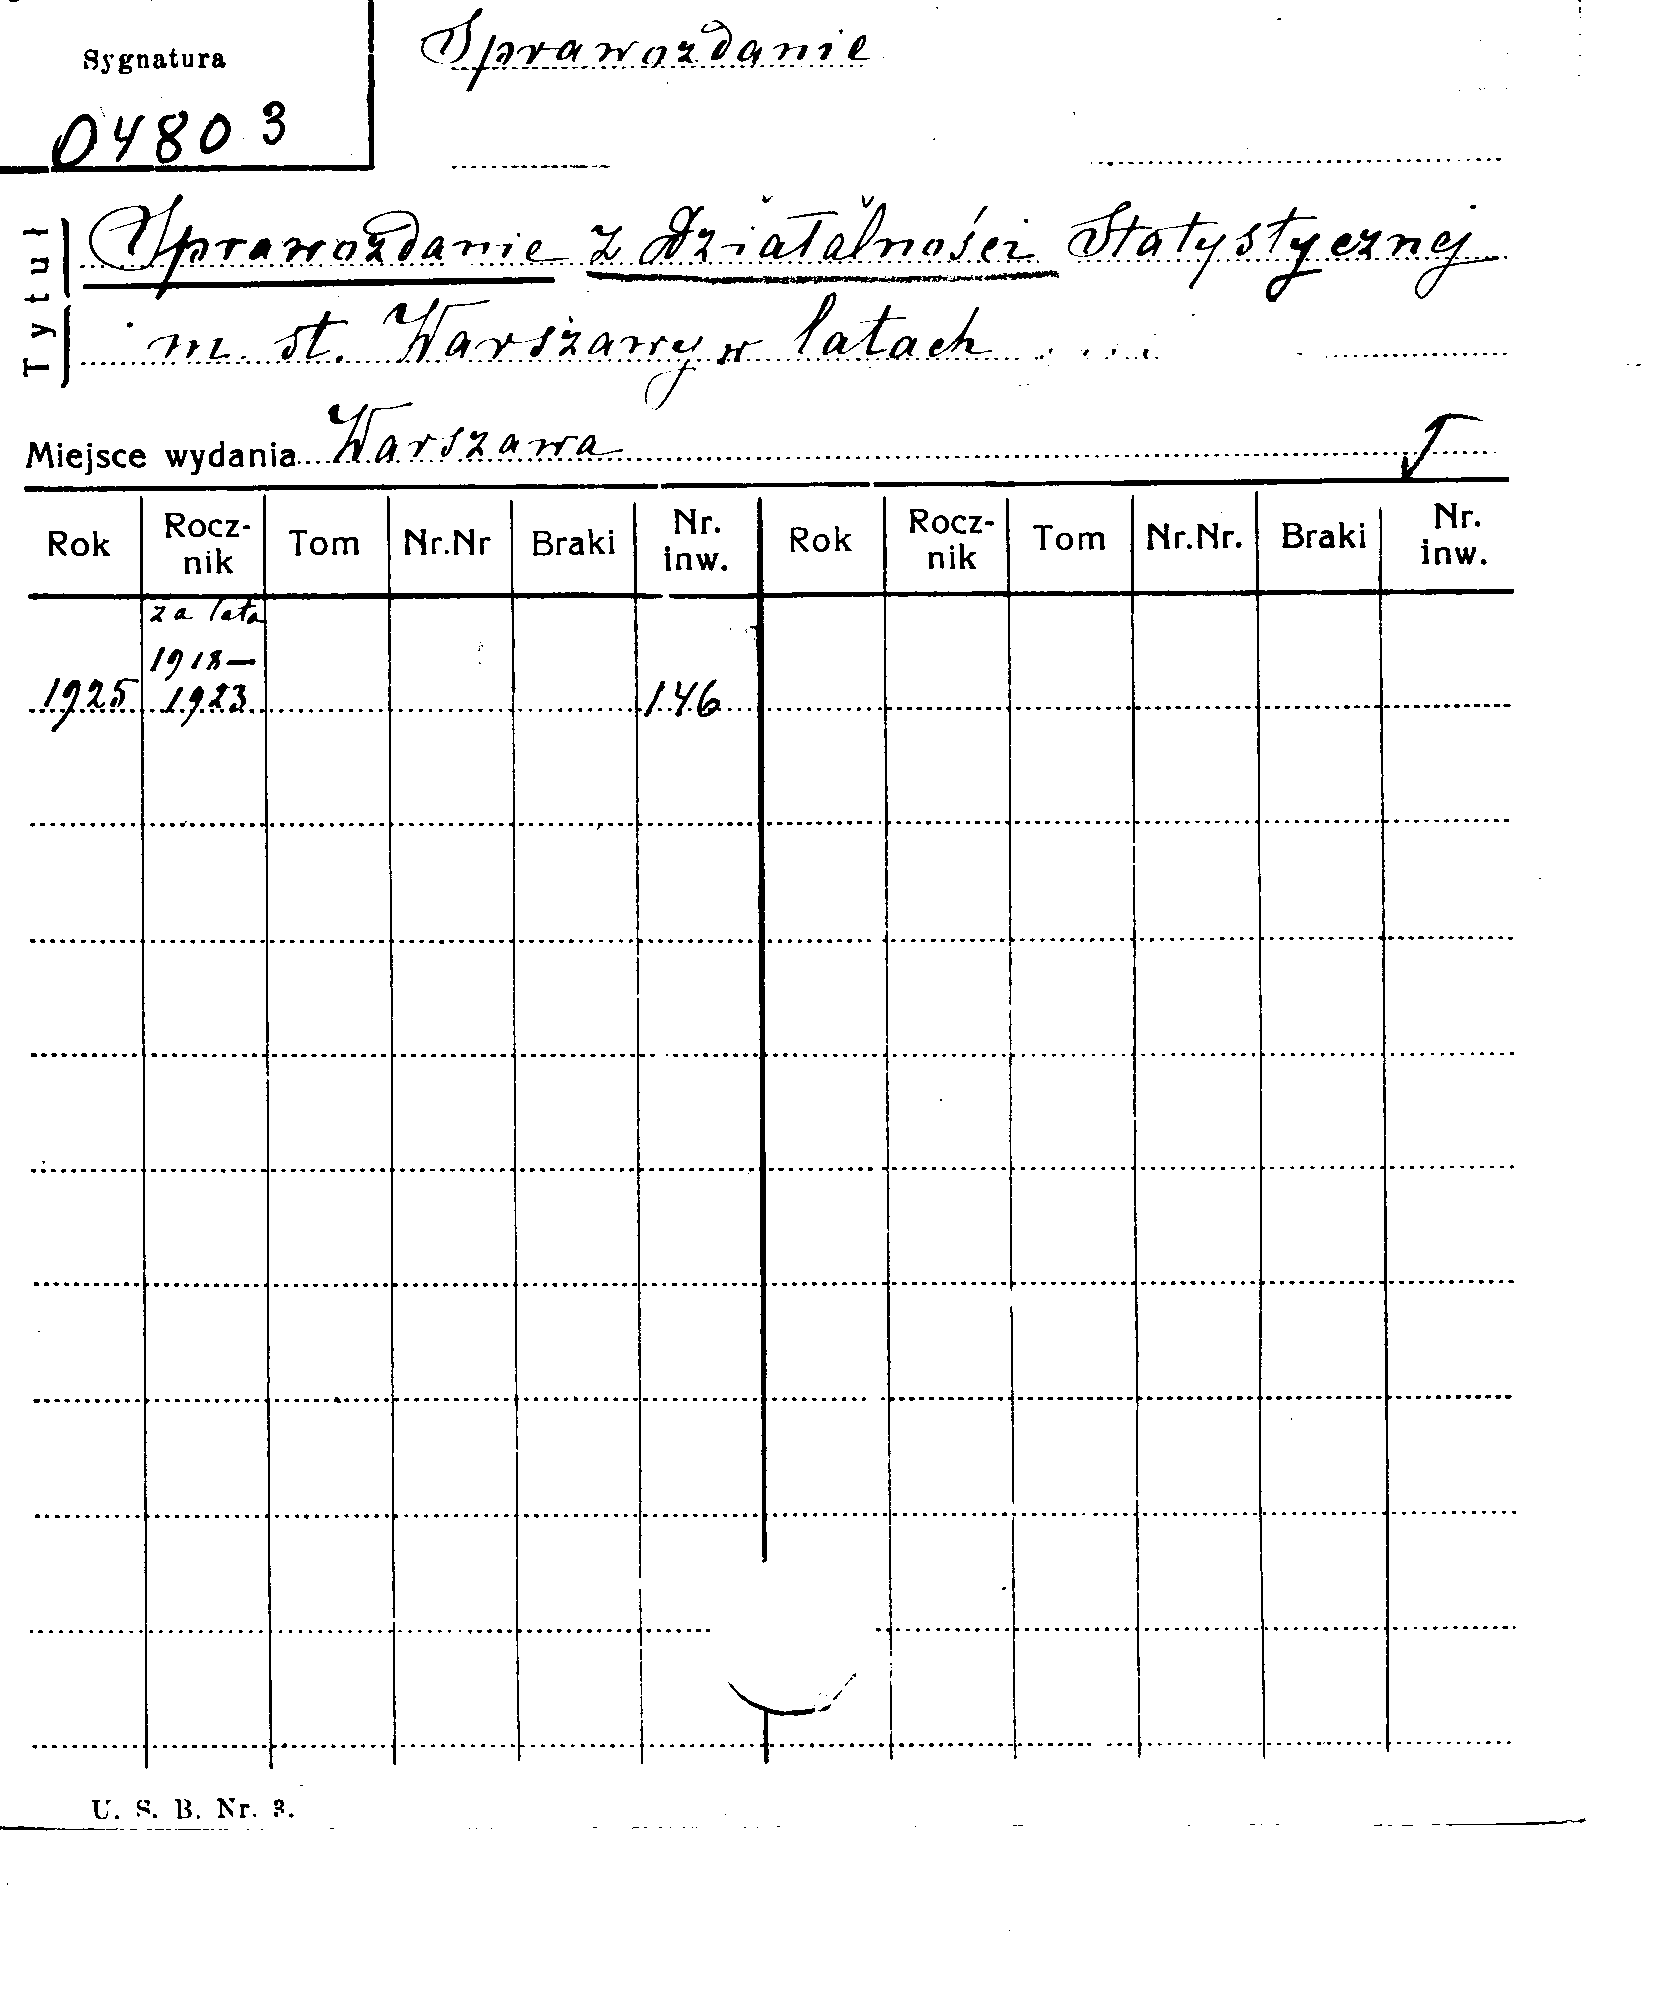 Sygnatura
04803
Sprawozdanie
Tytuł
Sprawozdanie z Działalności Statystycznej
m. st. Warszawy w latach . . . .
Miejsce wydania Warszawa
Rok Rocz-nik Tom Nr.Nr Braki Nr. inw. Rok Rocz-nik Tom Nr.Nr. Braki Nr. inw.
za lata
1918—
1925 1923 146
U. S. B. Nr. 3.